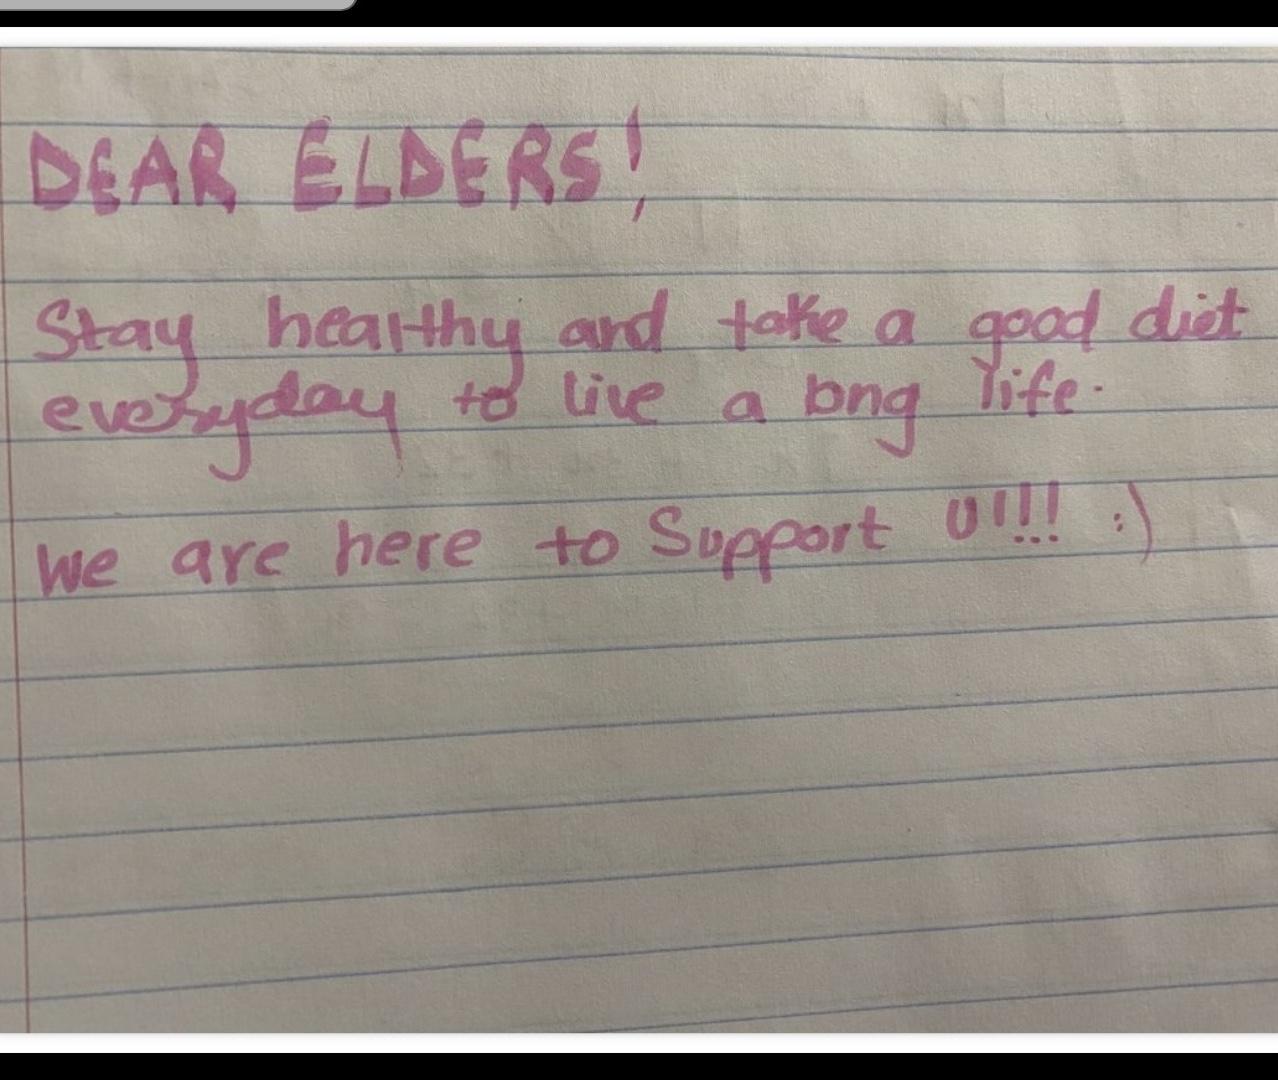 DEAR ELDERS!
Stay healthy and take a good diet
everyday to live a long life.
We are here to Support U!!!! :)